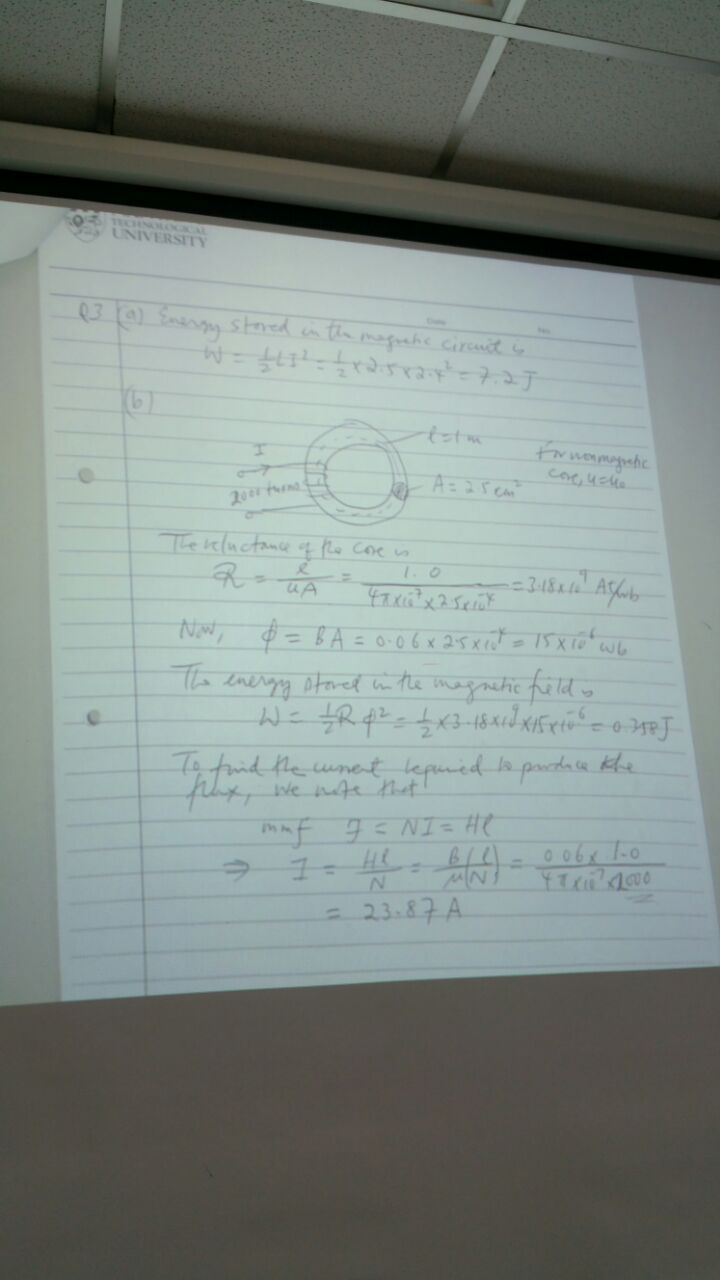 TECHNOLOGICAL
UNIVERSITY
Date No.
Q3 (a) Energy stored in the magnetic circuit is
W = ½LI² = ½ × 2.5 × 2.4² = 7.2 J
(b)
l = 1 m
I
For nonmagnetic
core, u = u₀
2000 turns
A = 25 cm²
The reluctance of the core is
R = l/uA = 1.0/(4π×10⁻⁷ × 2.5×10⁻⁴) = 3.18×10⁹ AT/wb
Now, ϕ = BA = 0.06 × 2.5×10⁻⁴ = 15×10⁻⁶ wb
The energy stored in the magnetic field is
W = ½Rϕ² = ½ × 3.18×10⁹ × 15×10⁻⁶ = 0.358 J
To find the current required to produce the
flux, we note that
mmf F = NI = Hl
⇒ I = Hl/N = B/μ(l/N) = 0.06 × 1.0/(4π×10⁻⁷ × 2000)
= 23.87 A